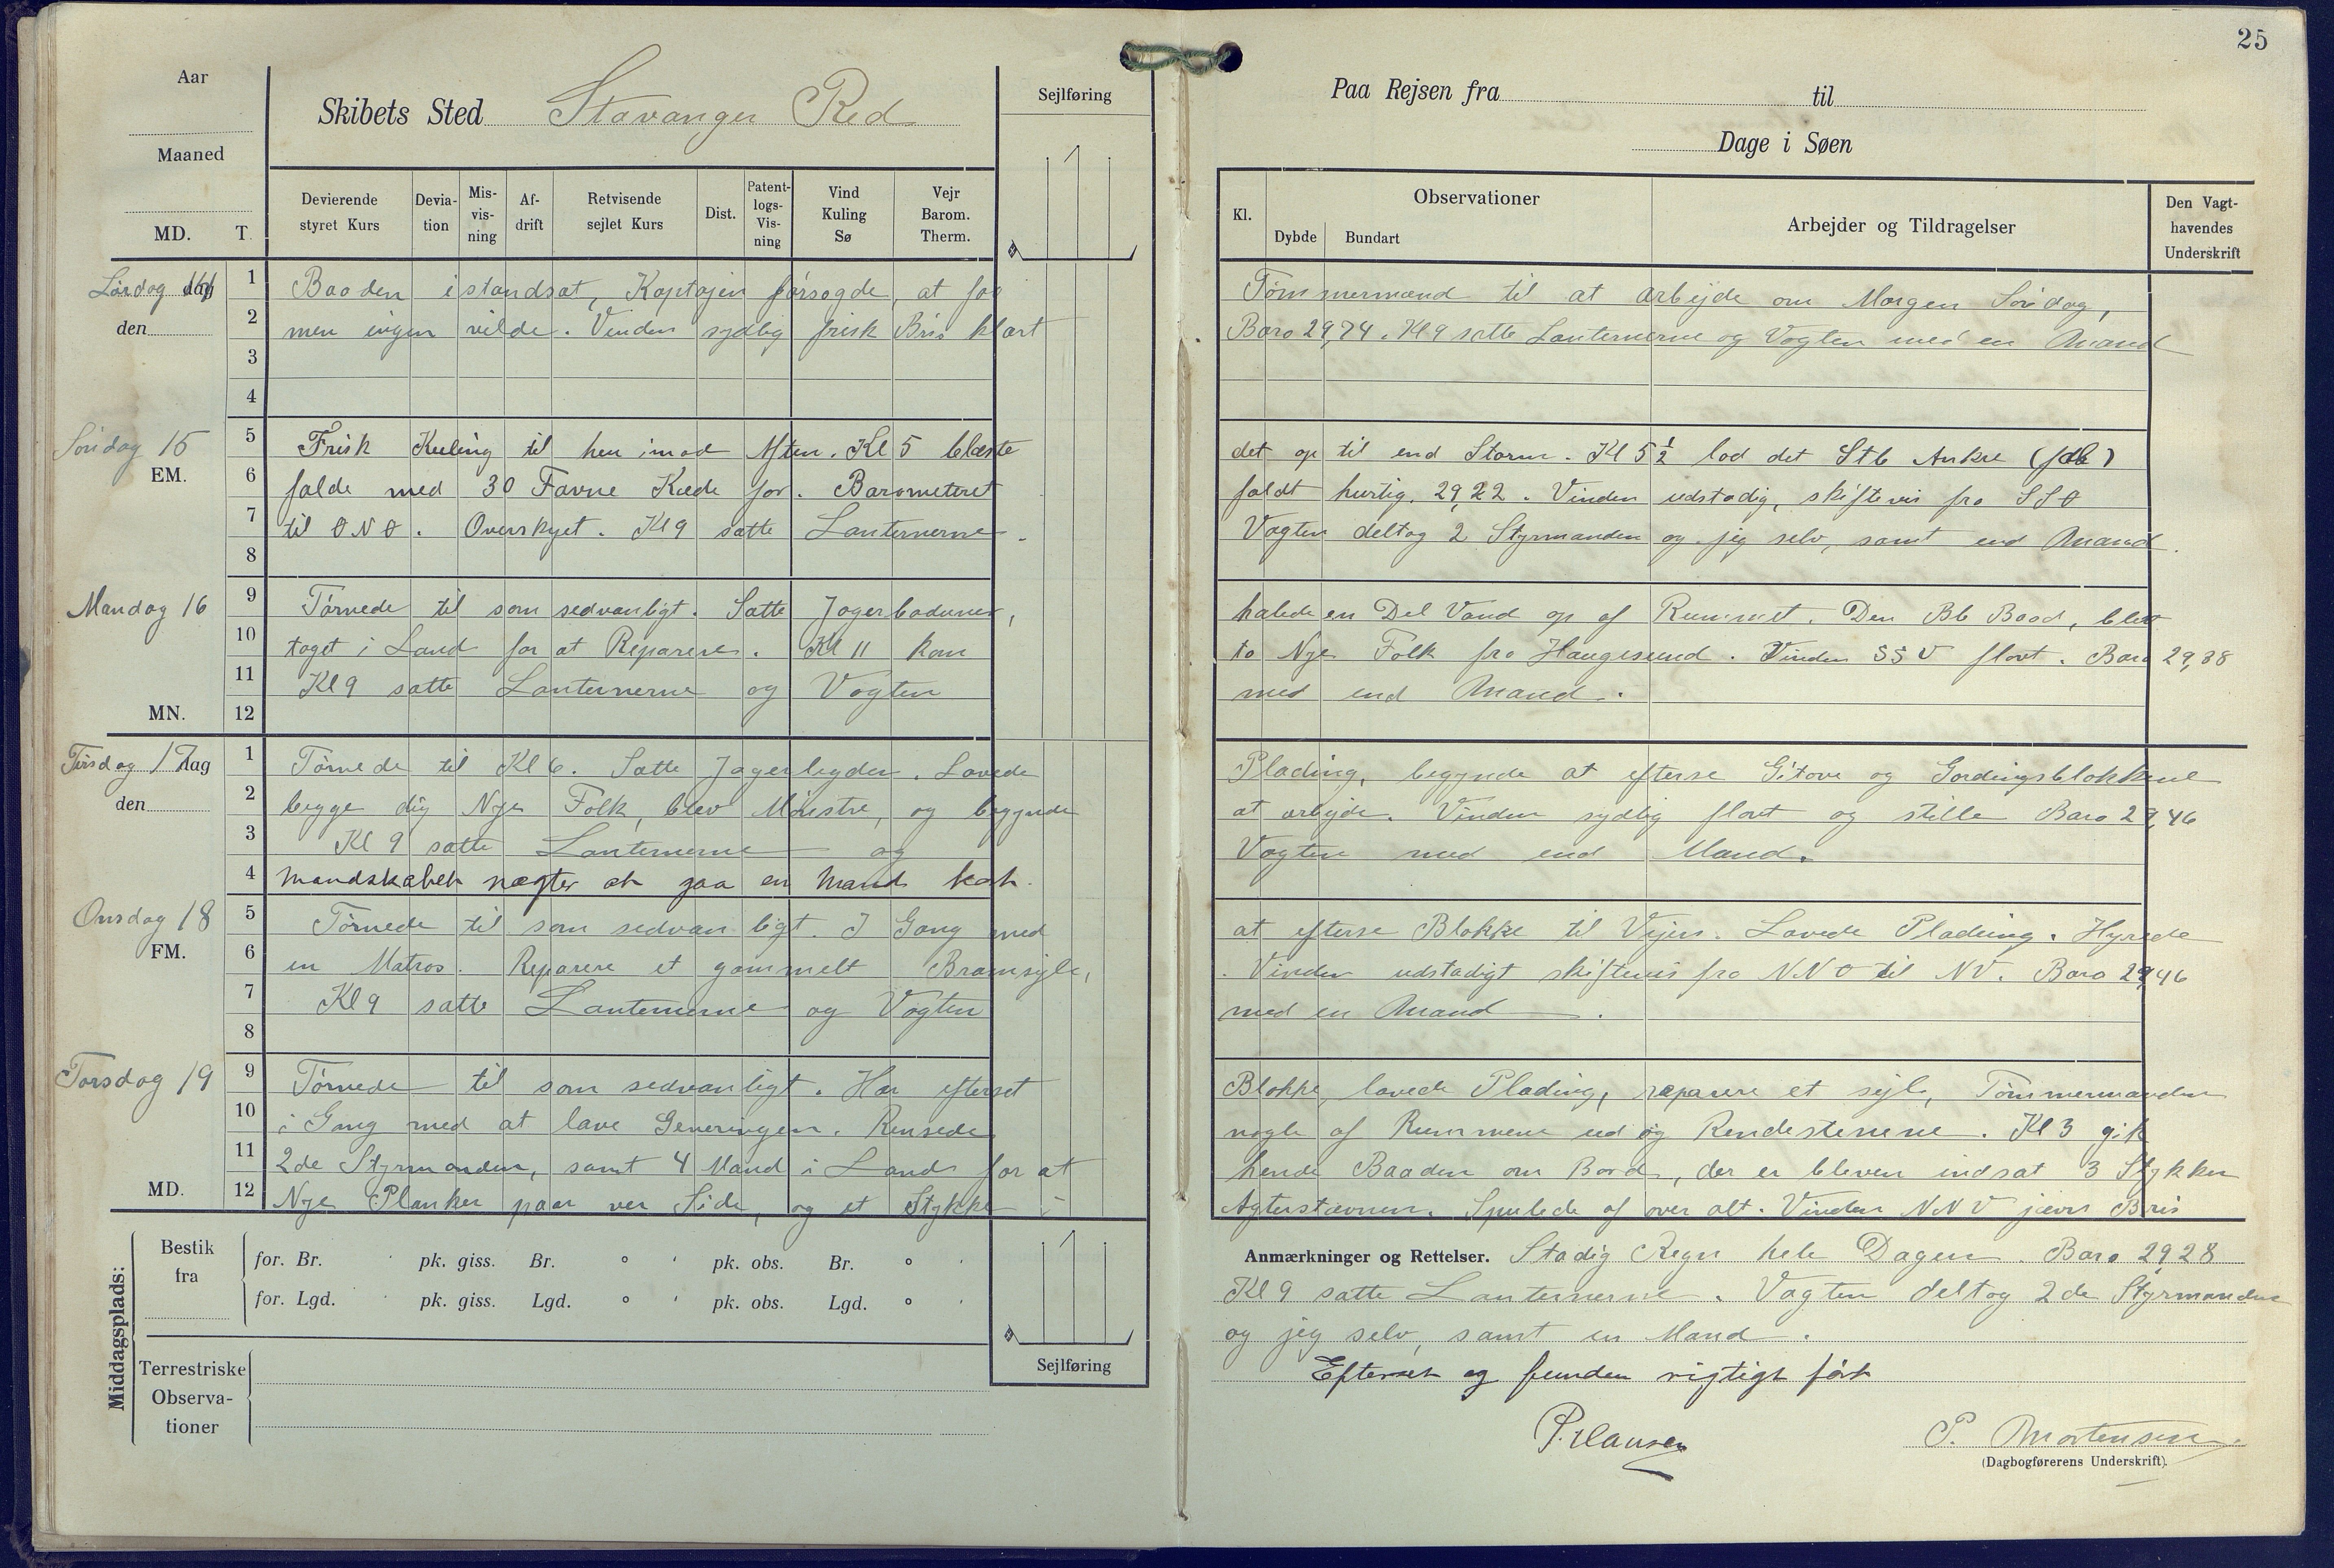 25
Aar
Skibets Sted Stavanger Red
Sejlføring
Paa Rejsen fra til
Maaned
Dage i Søen
MD. T.
Devierende styret Kurs
Devia-tion
Mis-vis-ning
Af-drift
Retvisende sejlet Kurs
Dist.
Patent-logs-Vis-ning
Vind Kuling Sø
Vejr Barom. Therm.
Kl.
Observationer
Dybde
Bundart
Arbejder og Tildragelser
Den Vagt-havendes Underskrift
Lørdag
den
1 Baaden istandsat, Kaptajen forsøgde, at faa Tømmermænd til at arbejde om Morgen Søndag,
2 men ingen vilde. Vinden sydlig frisk Bris klart Baro 29,74. Kl 9 satte Lanternerne og Vagten med en Mand
3
4
Søndag 15
EM.
5 Frisk Kuling til hen imod Aften. Kl 5 blæste det op til end Storm. Kl 5½ lod det Stb Anker
6 falde med 30 Favne Kæde for. Barometeret faldt hurtig. 29,22. Vinden ustadig, skiftevis fra SSO
7 til ONO. Overskyet. Kl 9 satte Lanternerne. Vagten deltog 2 Styrmanden og jeg selv, samt end Mand.
8
Mandag 16
MN.
9 Tørnede til som sedvanligt. Satte Jagerbaduner, halede en Del Vand op af Rummet. Den Bb Baad, blev
10 taget i Land for at Reparere. Kl 11 kom to Nye Folk fra Haugesund. Vinden SSV flovt. Baro 29,38
11 Kl 9 satte Lanternerne og Vagten med end Mand.
12
Tirsdag 17
den
1 Tørnede til Kl 6. Satte Jagerleyder. Lavede Plading, begynde at efterse Gitove og Gordingsblokkene
2 begge dig Nye Folk, blev Mønstre, og begynde at arbejde. Vinden sydlig flovt og stille Baro 29,46
3 Kl 9 satte Lanternerne og Vagten med end Mand.
4 Mandskabet nægter at gaa en Mand kort.
Onsdag 18
FM.
5 Tørnede til som sedvanligt. I Gang med at efterse Blokke til Vejrs. Lavede Plading. Hyrede
6 en Matros. Reparere et gammelt Bramsejle, Vinden udstadigt skiftevis fra NNO til NV. Baro 29,46
7 Kl 9 satte Lanternerne og Vagten med en Mand.
8
Torsdag 19
MD.
9 Tørnede til som sedvanligt. Har efterset Blokke, lavede Plading, reparere et sejl, Tømmermanden
10 i Gang med at lave Generingen. Rensede nogle af Rummene ud og Rendestenene. Kl 3 gik
11 2de Styrmanden, samt 4 Mand i Land for at hende Baaden om Bord, der er bleven indsat 3 Stykker
12 Nye Planker paar ver Side, og et Stykke i Agterstævnen. Spulede af over alt. Vinden NNV jævn Bris
Anmærkninger og Rettelser. Stadig Regn hele Dagen. Baro 29,28
Kl 9 satte Lanternerne. Vagten deltog 2de Styrmanden
og jeg selv, samt en Mand.
Efterset og funden rigtigt ført
P. Mortensen
(Dagbogførerens Underskrift).
Middagsplads:
Bestik fra
for. Br. pk. giss. Br. ° ' pk. obs. Br. ° '
for. Lgd. pk. giss. Lgd. ° ' pk. obs. Lgd. ° '
Terrestriske Observa-tioner
Sejlføring